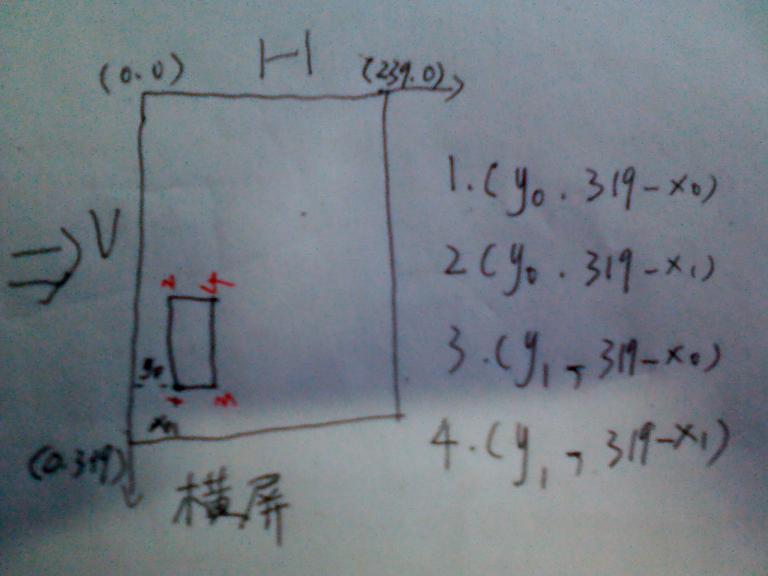 H
(0.0)
(239.0)
⇒ V
1. (y₀ . 319-x₀)
2 (y₀ . 319-x₁)
3. (y₁, 319-x₀)
4. (y₁, 319-x₁)
2 4
y₀
1 3
x₀
(0.319)
横屏